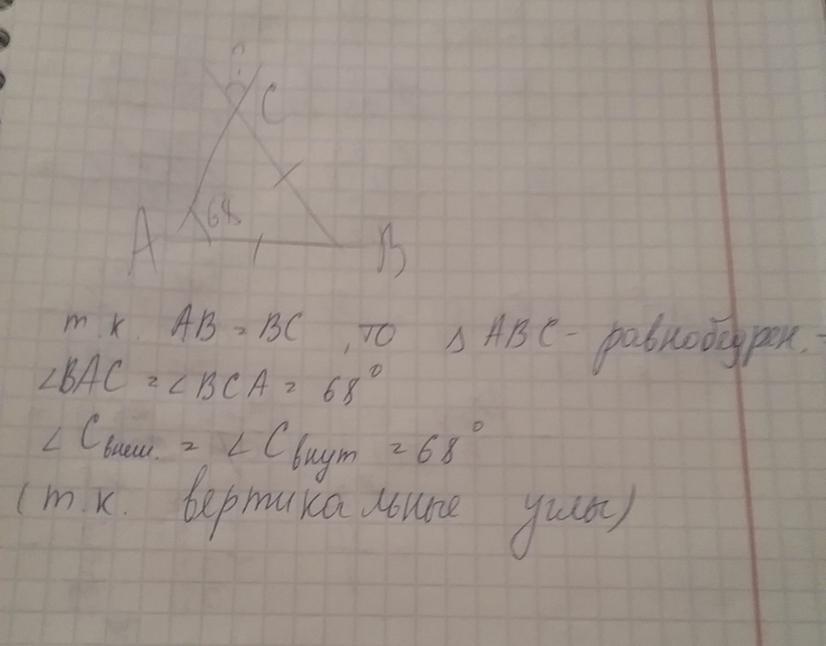 ?
C
68
A
B
т.к. AB = BC, то △ ABC - равнобедрен. -
∠BAC = ∠BCA = 68°
∠Cвнеш. = ∠Cвнут = 68°
(т.к. вертикальные углы)